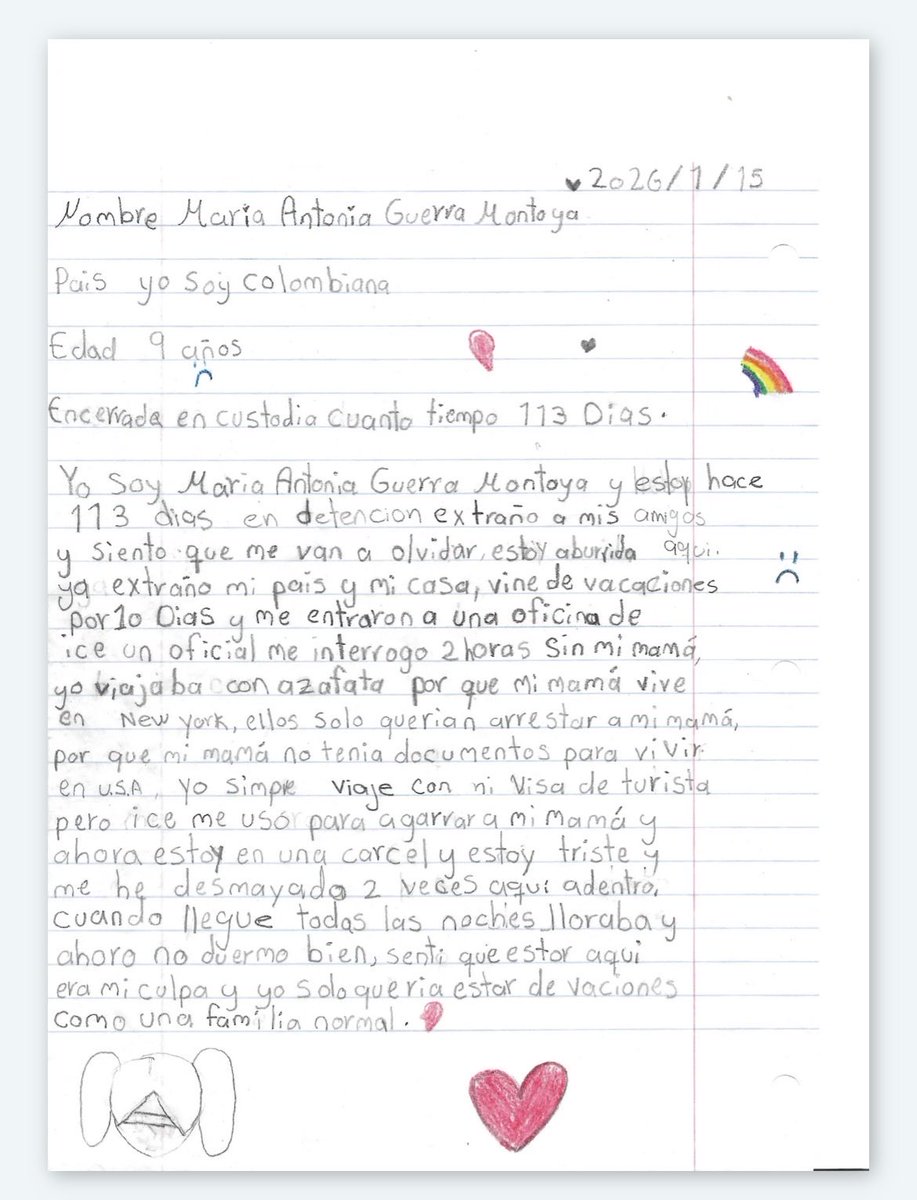 ♥2026/1/15
Nombre Maria Antonia Guerra Montoya
Pais yo soy colombiana
Edad 9 años
Encerrada en custodia cuanto tiempo 113 Dias.
Yo soy Maria Antonia Guerra Montoya y estoy hace
113 dias en detencion extraño a mis amigos
y siento que me van a olvidar, estoy aburrida aqui.
ya extraño mi pais y mi casa, vine de vacaciones
por 10 Dias y me entraron a una oficina de
ice un oficial me interrogo 2 horas sin mi mamá,
yo viajaba con azafata por que mi mamá vive
en New york, ellos solo querian arrestar a mi mamá,
por que mi mamá no tenia documentos para vivir
en U.S.A, yo simpre viaje con mi Visa de turista
pero ice me uso para agarrar a mi mamá y
ahora estoy en una carcel y estoy triste y
me he desmayado 2 veces aqui adentro,
cuando llegue todas las noches lloraba y
ahora no duermo bien, senti que estar aqui
era mi culpa y yo solo queria estar de vaciones
como una familia normal.